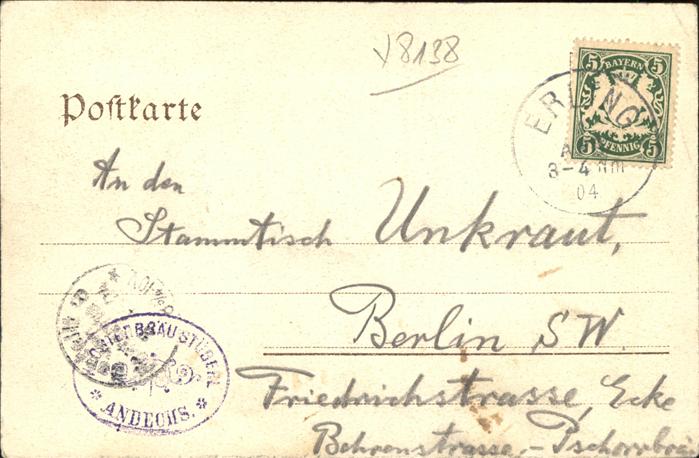 V8138
BAYERN
5 5
5 PFENNIG 5
ERLING
3-4 NM
04
Postkarte
An den
Stammtisch Unkraut,
Berlin SW.
Friedrichstrasse, Ecke
Behrenstrasse, - Pschorrbräu
KLOSTERBRÄUSTÜBERL
* ANDECHS. *